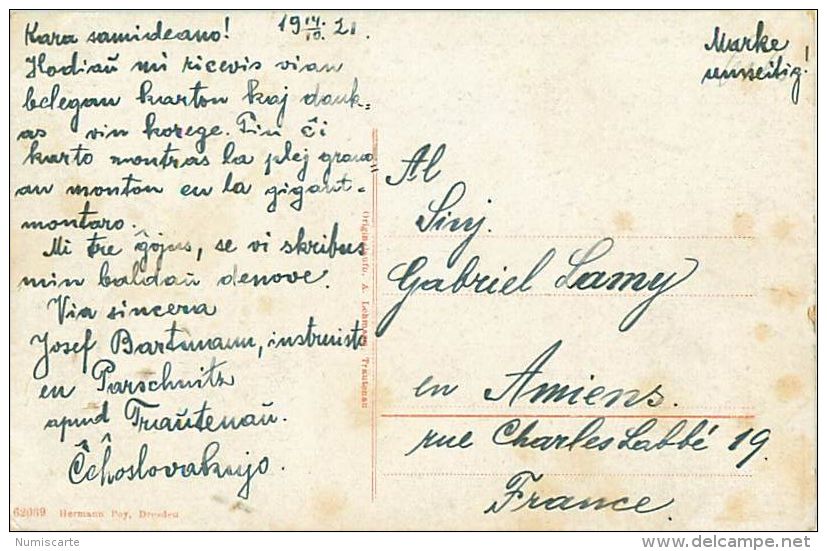 Kara samideano! 19 14/10. 21.
Hodiaŭ mi ricevis vian
belegan karton kaj dank-
as vin korege. Tiu ĉi
karto montras la plej grand-
an monton en la gigant-
montaro.
Mi tre ĝojus, se vi skribus
min baldaŭ denove.
Via sincera
Josef Bartmann, instruisto
en Parschnitz
apud Traŭtenaŭ.
Ĉeĥoslovakujo.
Marke
umseitig!
Al
Sinj.
Gabriel Lamy
en Amiens.
rue Charles Labbé 19.
France.
Originalaufn. A. Lehmann, Trautenau
62039 Hermann Poy, Dresden
Numiscarte
delcampe.net